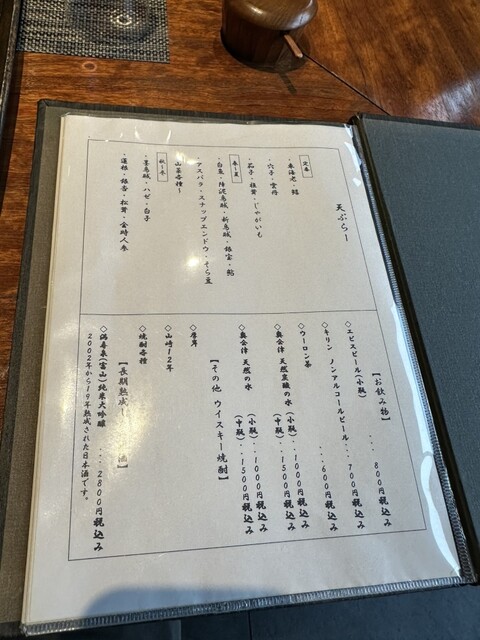 天ぷらー
定番
・車海老・鱚
・穴子・雲丹
・茄子・椎茸・じゃがいも
春〜夏
・白魚・障泥烏賊・新烏賊・銀宝・鮎
・アスパラ・スナップエンドウ・そら豆
・山菜各種〜
秋〜冬
・墨烏賊・ハゼ・白子
・蓮根・銀杏・松茸・金時人参
【お飲み物】
◇ヱビスビール(小瓶) ... 800円税込み
◇キリン ノンアルコールビール... 700円税込み
◇ウーロン茶 ... 600円税込み
◇奥会津 天然炭酸の水 (小瓶) 1000円税込み
(中瓶) ... 1500円税込み
◇奥会津 天然の水 (小瓶) 1000円税込み
(中瓶) ... 1500円税込み
【その他 ウイスキー焼酎】
◇厚岸
◇山崎12年
◇焼酎各種
【長期熟成 酒】
◇満寿泉(富山)純米大吟醸 ... 2800円税込み
2002年から19年熟成された日本酒です。